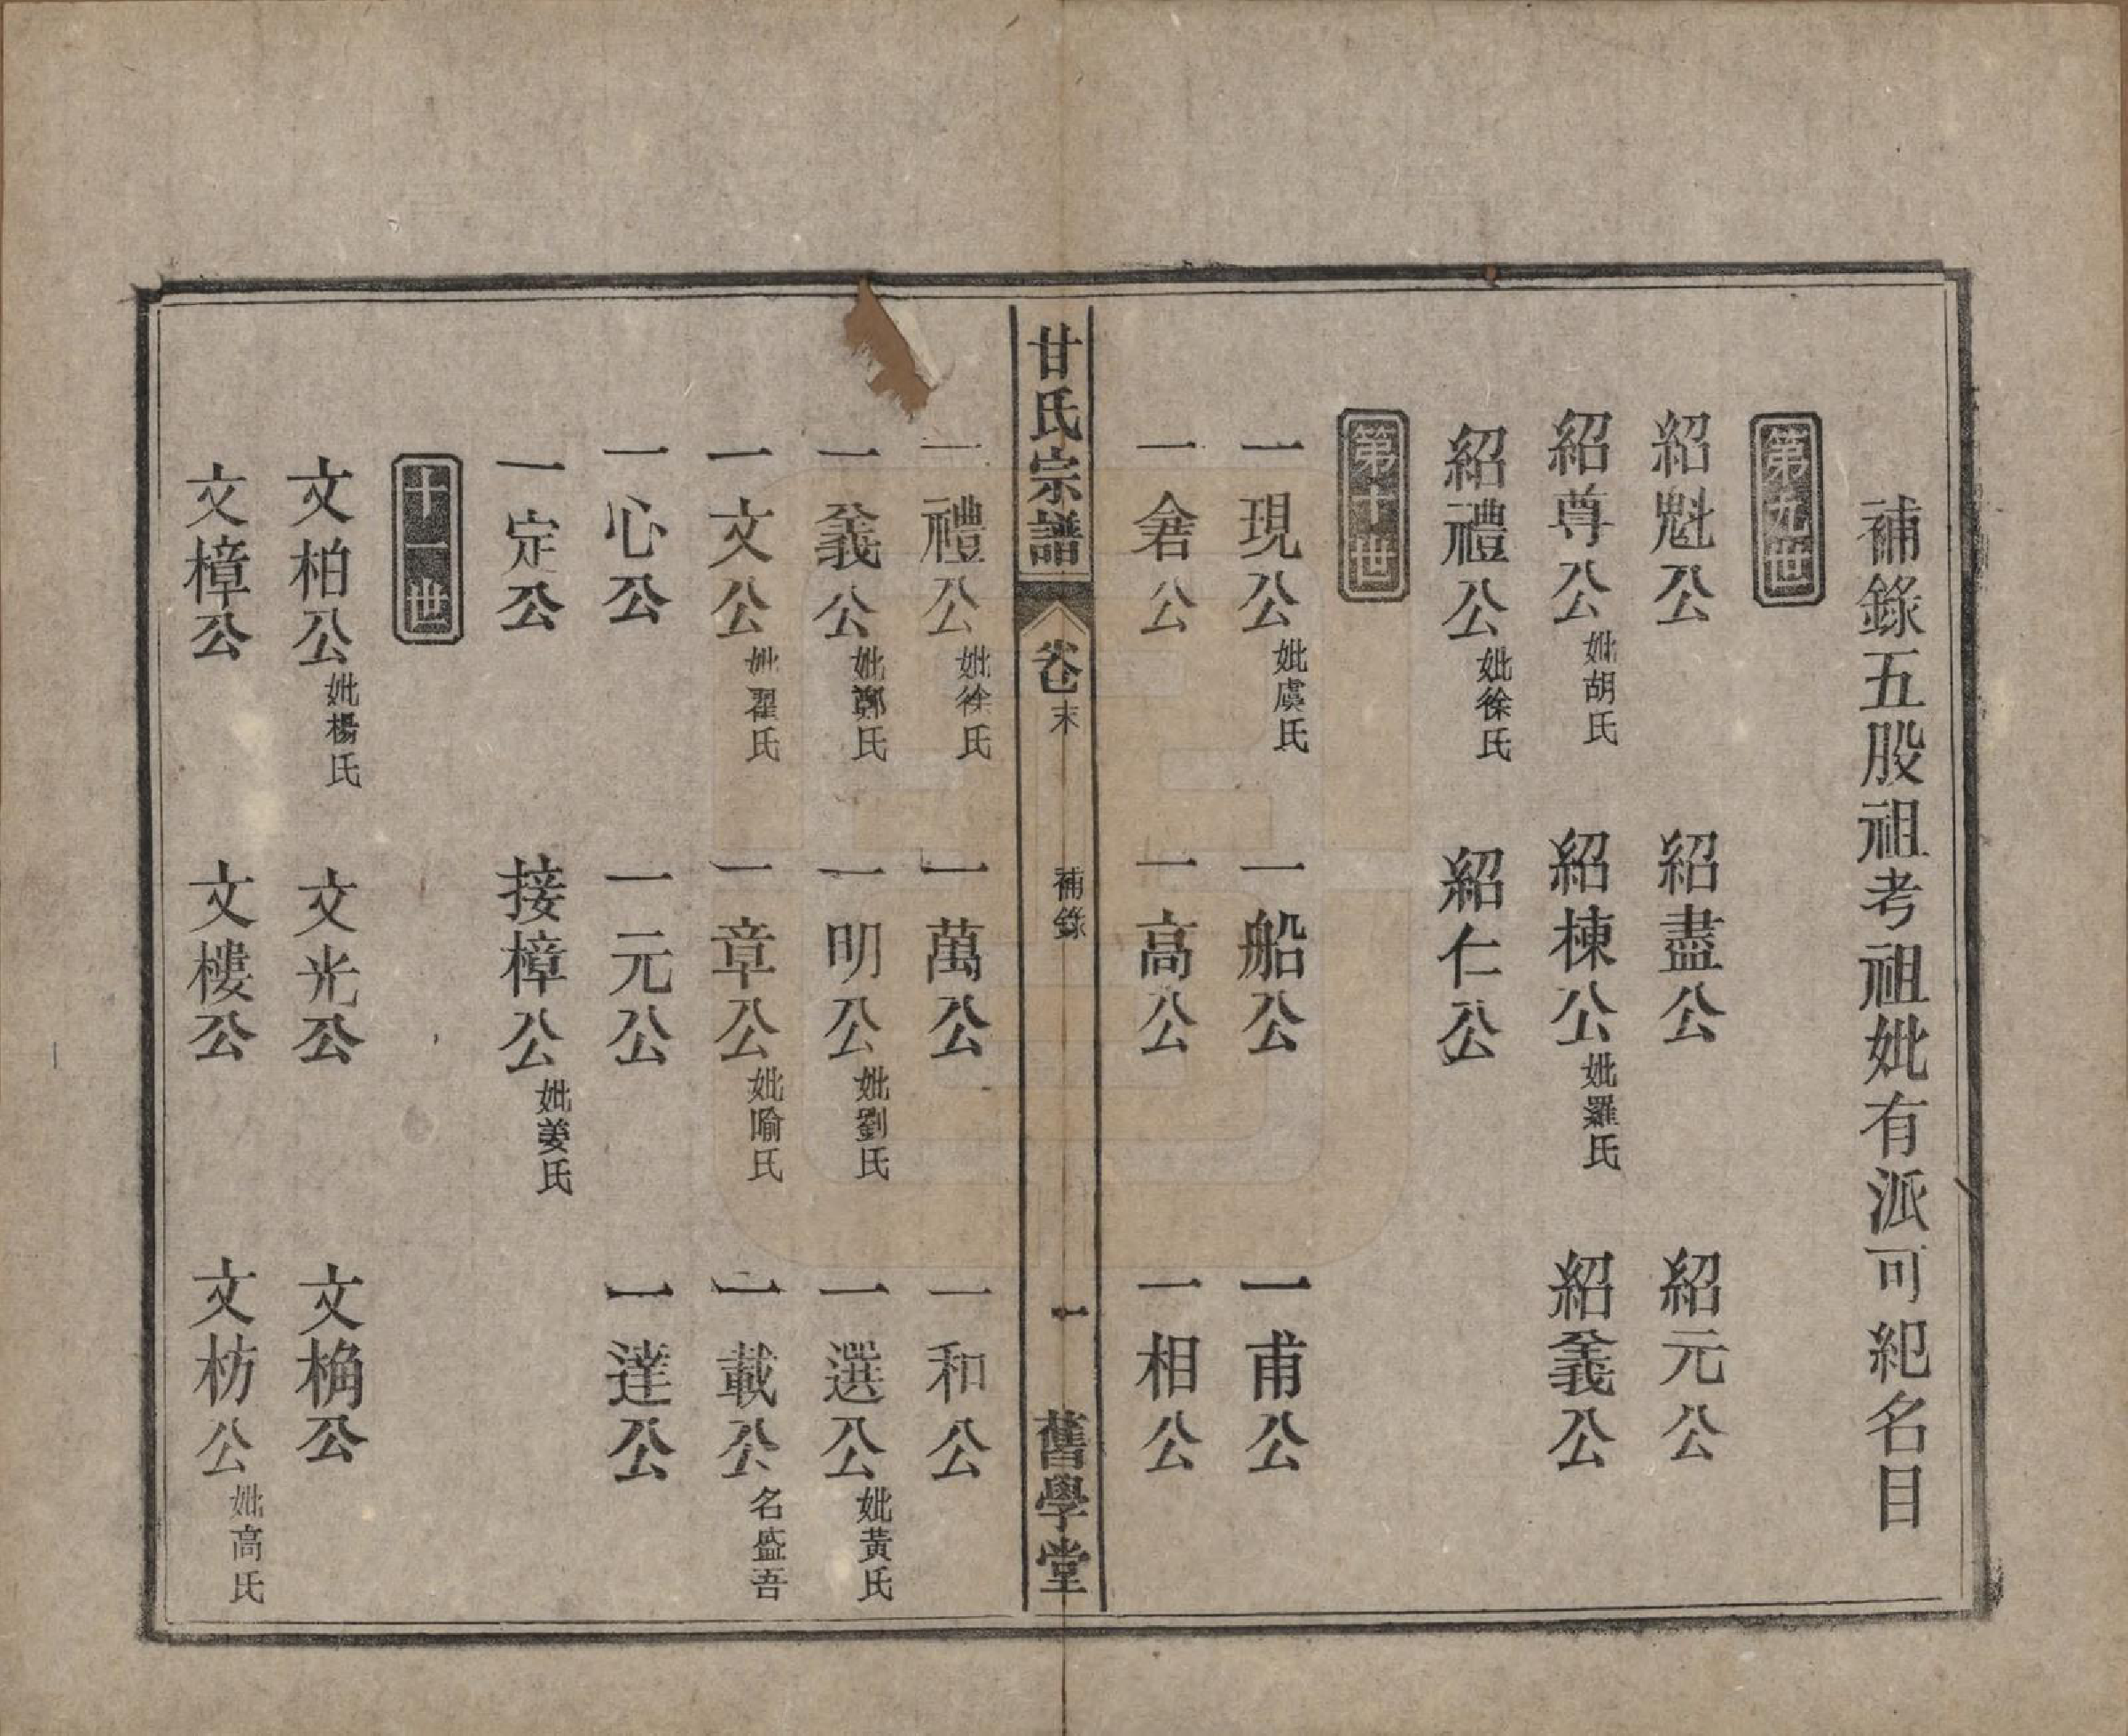 補錄五股祖考祖妣有派可紀名目
第九世
紹魁公　紹盡公　紹元公
紹尊公妣胡氏　紹棟公妣羅氏　紹義公
紹禮公妣徐氏　紹仁公
第十世
一現公妣虞氏　一船公　一甫公
一倉公　一高公　一相公
甘氏宗譜　卷末　補錄　一　舊學堂
一禮公妣徐氏　一萬公　一和公
一義公妣鄭氏　一明公妣劉氏　一選公妣黃氏
一文公妣翟氏　一章公妣喻氏　一載公名盛吾
一心公　一元公　一達公
一定公　接樟公妣姜氏
十一世
文柏公妣楊氏　文光公　文桷公
文樟公　文樓公　文枋公妣高氏